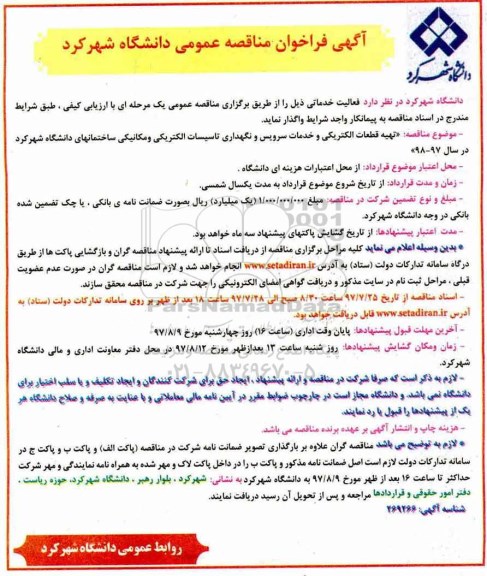 آگهی فراخوان مناقصه عمومی دانشگاه شهرکرد
دانشگاه شهرکرد
دانشگاه شهرکرد در نظر دارد فعالیت خدماتی ذیل را از طریق برگزاری مناقصه عمومی یک مرحله ای با ارزیابی کیفی ، طبق شرایط
مندرج در اسناد مناقصه به پیمانکار واجد شرایط واگذار نماید.
- موضوع مناقصه: «تهیه قطعات الکتریکی و خدمات سرویس و نگهداری تاسیسات الکتریکی ومکانیکی ساختمانهای دانشگاه شهرکرد
در سال ۹۷-۹۸»
- محل اعتبار موضوع قرارداد: از محل اعتبارات هزینه ای دانشگاه .
- زمان و مدت قرارداد: از تاریخ شروع موضوع قرارداد به مدت یکسال شمسی.
- مبلغ و نوع تضمین شرکت در مناقصه: مبلغ ۱/۰۰۰/۰۰۰/۰۰۰ (یک میلیارد) ریال بصورت ضمانت نامه ی بانکی ، یا چک تضمین شده
بانکی در وجه دانشگاه شهرکرد.
- مدت اعتبار پیشنهادها: از تاریخ گشایش پاکتهای پیشنهاد سه ماه خواهد بود.
* بدین وسیله اعلام می نماید کلیه مراحل برگزاری مناقصه از دریافت اسناد تا ارائه پیشنهاد مناقصه گران و بازگشایی پاکت ها از طریق
درگاه سامانه تدارکات دولت (ستاد) به آدرس www.setadiran.ir انجام خواهد شد و لازم است مناقصه گران در صورت عدم عضویت
قبلی ، مراحل ثبت نام در سایت مذکور و دریافت گواهی امضای الکترونیکی را جهت شرکت در مناقصه محقق سازند.
- اسناد مناقصه از تاریخ ۹۷/۷/۲۵ ساعت ۸/۳۰ صبح الی ۹۷/۷/۲۸ ساعت ۱۸ بعد از ظهر بر روی سامانه تدارکات دولت (ستاد) به
آدرس www.setadiran.ir قابل دریافت خواهد بود.
- آخرین مهلت قبول پیشنهادها: پایان وقت اداری (ساعت ۱۶) روز چهارشنبه مورخ ۹۷/۸/۹
- زمان ومکان گشایش پیشنهادها: روز شنبه ساعت ۱۳ بعدازظهر مورخ ۹۷/۸/۱۲ در محل دفتر معاونت اداری و مالی دانشگاه
شهرکرد.
- لازم به ذکر است که صرفا شرکت در مناقصه و ارائه پیشنهاد ، ایجاد حق برای شرکت کنندگان و ایجاد تکلیف و یا سلب اختیار برای
دانشگاه نمی باشد. و دانشگاه مجاز است در چارچوب ضوابط مقرر در آیین نامه مالی معاملاتی و با عنایت به صرفه و صلاح دانشگاه هر
یک از پیشنهادها را قبول یا رد نمایند.
- هزینه چاپ و انتشار آگهی بر عهده برنده مناقصه می باشد.
* لازم به توضیح می باشد مناقصه گران علاوه بر بارگذاری تصویر ضمانت نامه شرکت در مناقصه (پاکت الف) و پاکت ب و پاکت ج در
سامانه تدارکات دولت لازم است اصل ضمانت نامه مذکور و پاکت ب را در داخل پاکت لاک و مهر شده به همراه نامه نمایندگی و مهر شرکت
حداکثر تا ساعت ۱۶ بعد از ظهر مورخ ۹۷/۸/۹ به دانشگاه شهرکرد به نشانی: شهرکرد ، بلوار رهبر ، دانشگاه شهرکرد، حوزه ریاست ،
دفتر امور حقوقی و قراردادها مراجعه و پس از تحویل آن رسید دریافت نمایند.
شناسه آگهی: ۲۶۹۲۶۶
روابط عمومی دانشگاه شهرکرد
ParsNamadData
۰۲۱-۸۸۳۴۹۶۷۰-۵